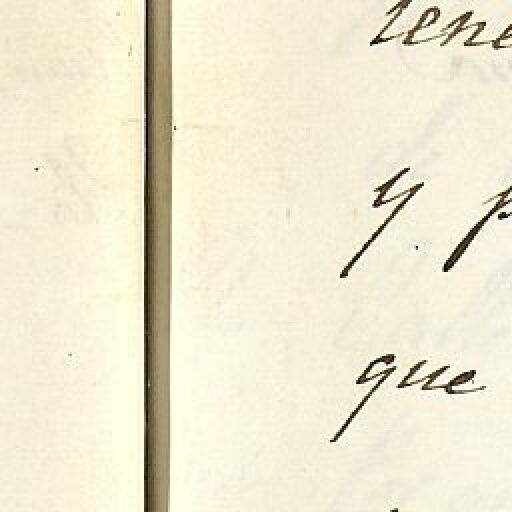 tene
y p
que